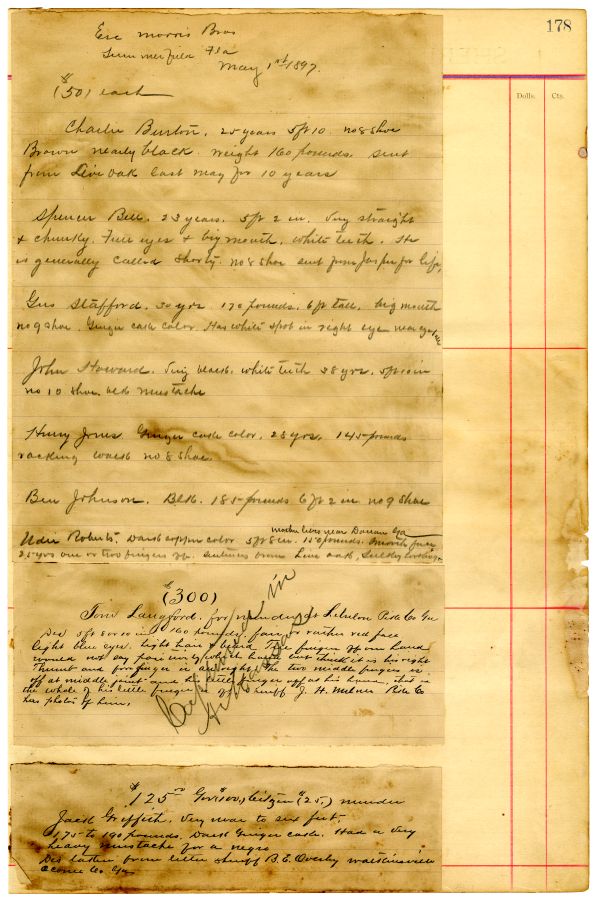 178
Dolls. Cts.
Esc morris Bros
Summerfield Fla
May 1st 1897.
$
(50) each
Charlie Burton. 25 years 5ft 10. no 8 shoe
Brown nearly black. weight 160 pounds. sent
from Live oak last may for 10 years
Spencer Bell. 23 years. 5ft 2 in. Very straight
& chunky. Free eyes & big mouth. white teeth. He
is generally called Shorty. no 8 shoe sent from Jasper for life,
Gus Stafford. 30 yrs. 170 pounds. 6 ft tall. big mouth
no 9 shoe. Ginger cake color. Has white spot in right eye near eye
John Howard. Very black. white teeth 38 yrs. 5ft 10 in
no 10 shoe. mustache
Henry Jones. Ginger cake color. 25 yrs. 145 pounds
racking walk no 8 shoe.
Ben Johnson. Blk. 185 pounds 6 ft 2 in. no 9 shoe
mother lives near Ga
Roberts. Dark copper color. 5ft 8 in. 150 pounds.
25 yrs one or two fingers off. sentence from Live oak,
$
(300)
Tom Langford. for murder at Zebulon Pike Co Ga
Des 5ft 8 or 10 in 160 pounds. fair or rather red face
light blue eyes. light hair & beard. The fingers off one hand
would not say positively which hand but think it is his right
Thumb and forefinger is all right. The two middle fingers is
off at middle joint and his little finger off at his hand, that is
the whole of his little finger is off Sheriff J. H. Milner Pike Co
has photos of him.
in
$125 00 Gov $100, Citizen $(25.) murder
Jack Griffith. Very near to six feet.
175 to 190 pounds. Dark Ginger cake. Had a very
heavy mustache for a negro
Des taken from letter sheriff B. E. Overby Watkinsville
Oconee Co Ga